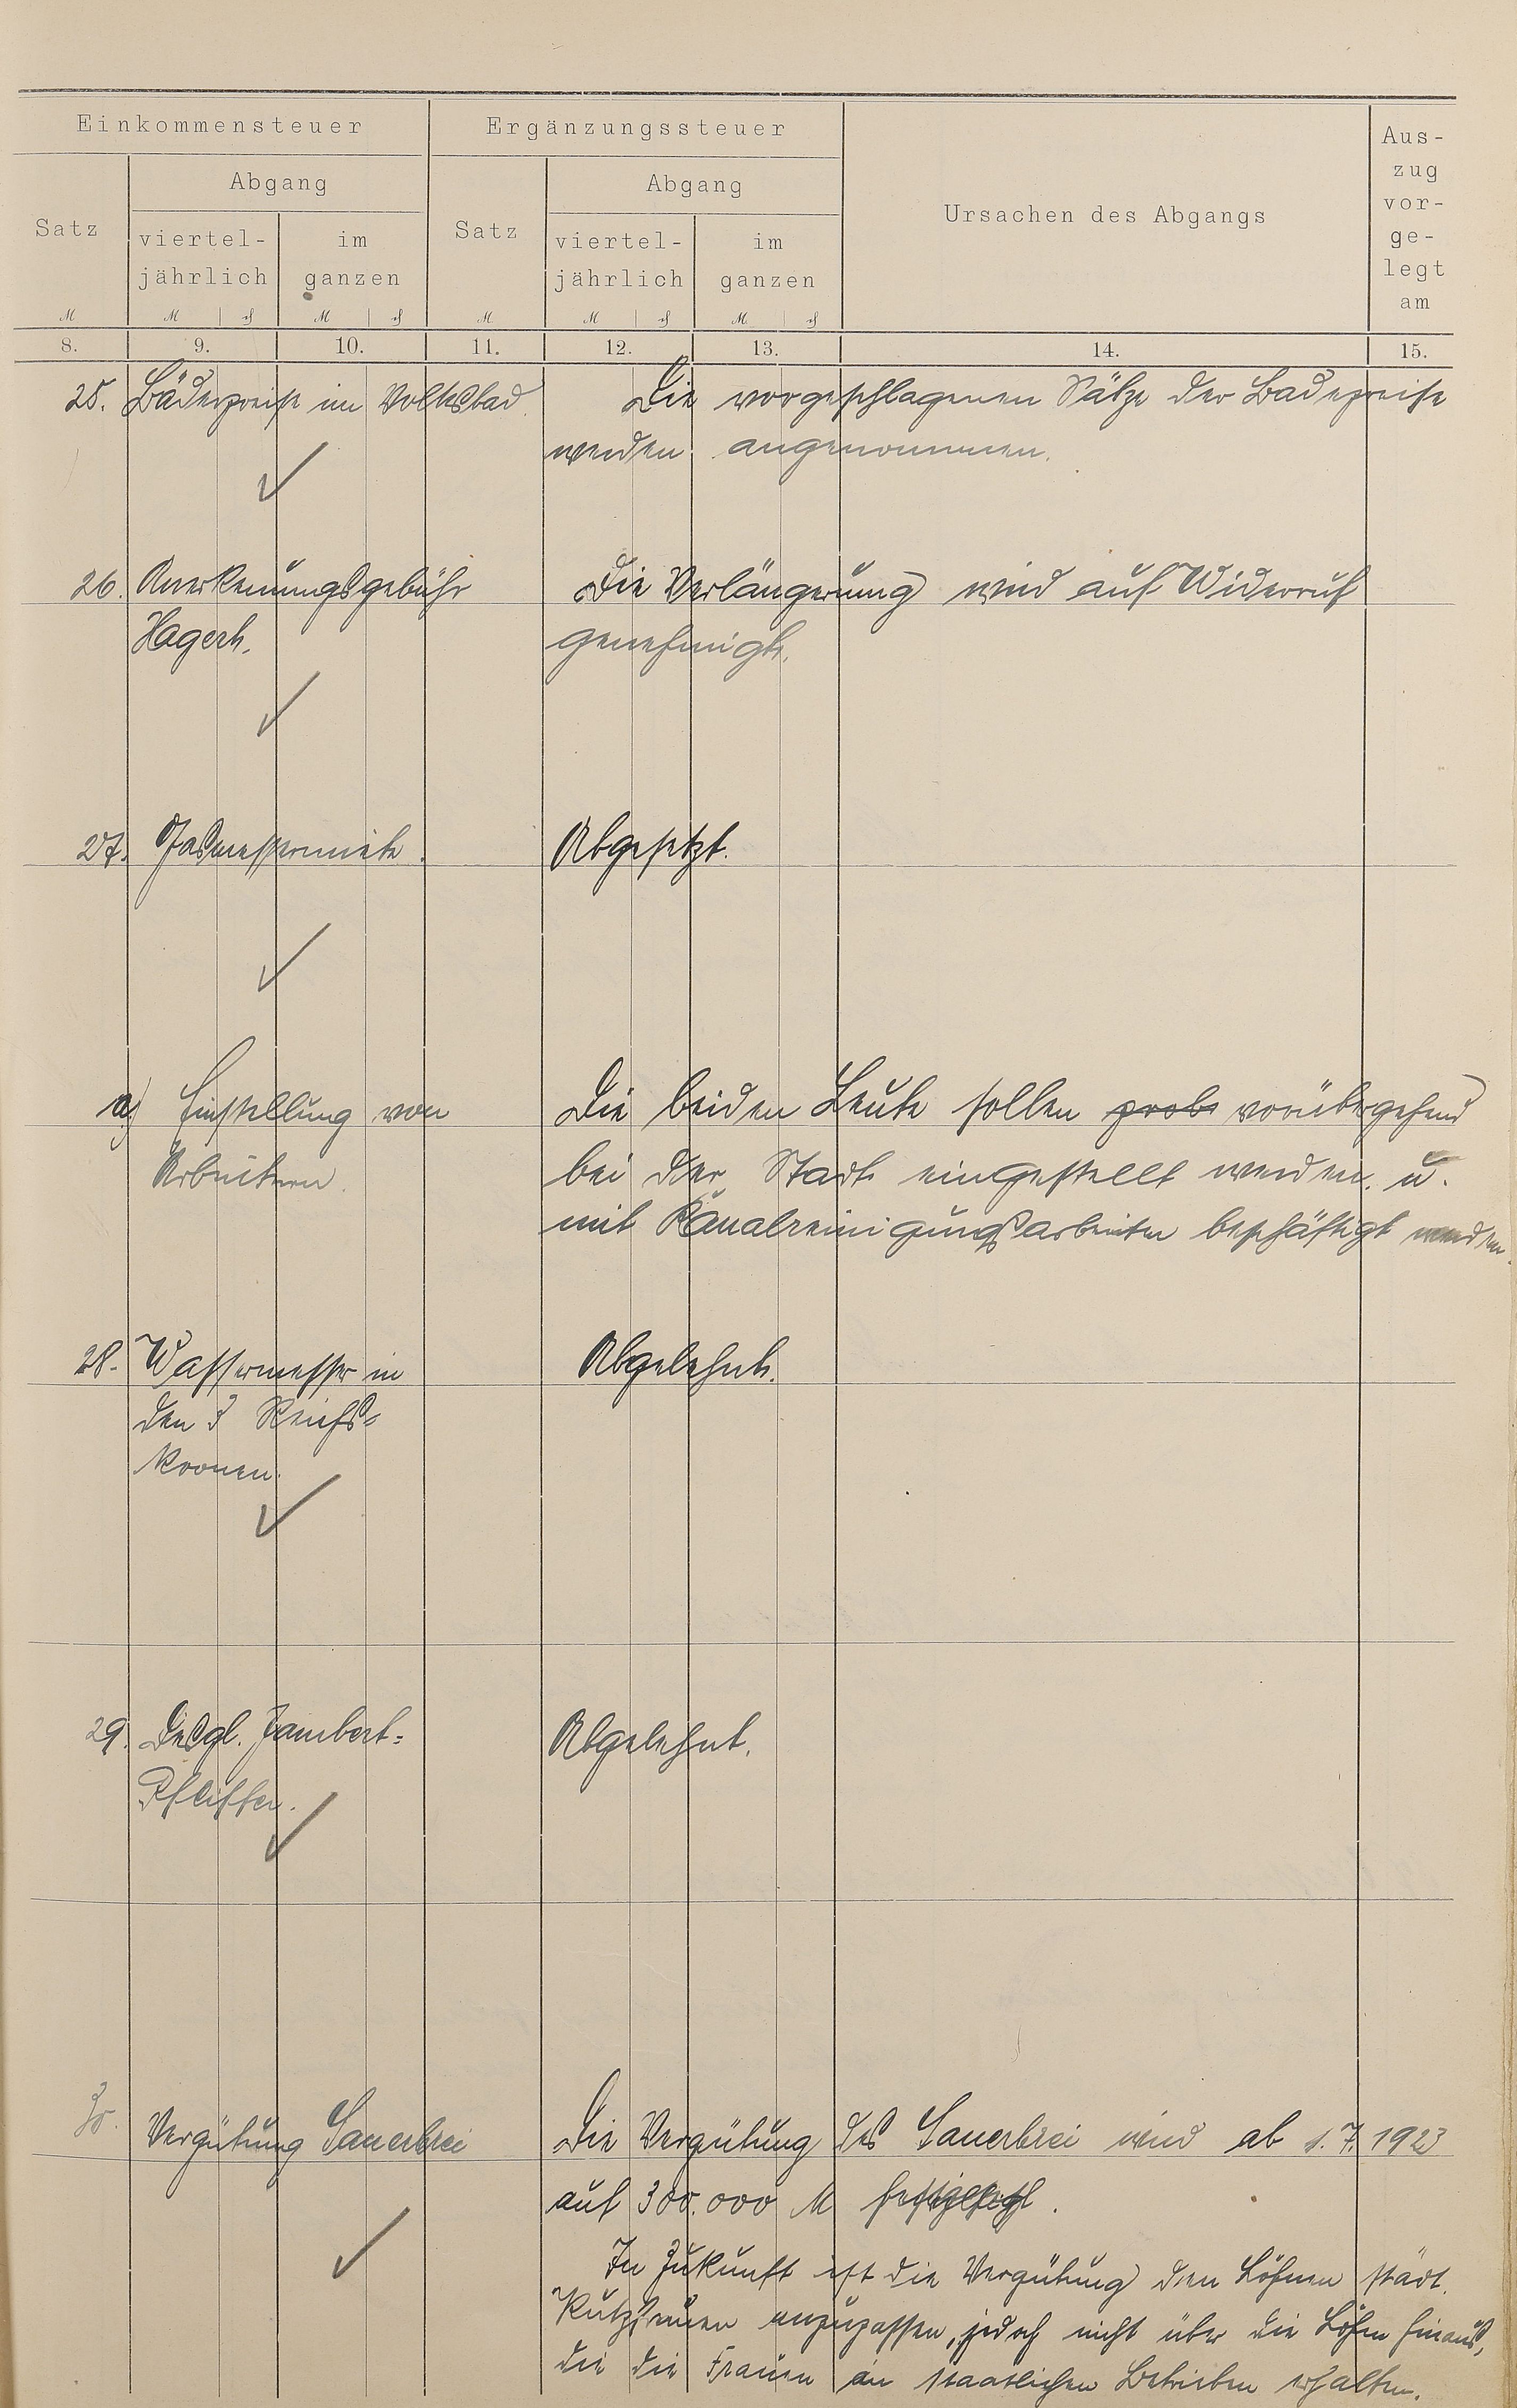 Einkommensteuer
Ergänzungssteuer
Ursachen des Abgangs
Aus-
zug
vor-
ge-
legt
am
Satz
Abgang
viertel-
jährlich
im
ganzen
Satz
Abgang
viertel-
jährlich
im
ganzen
M M ₰ M ₰ M M ₰ M ₰
8. 9. 10. 11. 12. 13. 14. 15.
25. Bäderpreise im Volksbad.
Die vorgeschlagenen Sätze der Badepreise
werden angenommen.
26. Anerkennungsgebühr
Hagert.
Die Verlängerung wird auf Widerruf
genehmigt.
27. Gasmessermiete.
Abgesetzt.
a) Einstellung von
Arbeitern.
Die beiden Leute sollen prob vorübergehend
bei der Stadt eingestellt werden u.
mit Kanalreinigungsarbeiten beschäftigt werden.
28. Wassermesser in
den 3 Reichs=
kronen.
Abgelehnt.
29. Desgl. Jambert=
Pfeiffer.
Abgelehnt.
30. Vergütung Sauerbrei
Die Vergütung des Sauerbrei wird ab 1.7.1923
auf 300.000 M festgesetzt.
In Zukunft ist die Vergütung den Löhnen städt.
Putzfrauen anzupassen, jedoch nicht über die Löhne hinaus,
die die Frauen in staatlichen Betrieben erhalten.